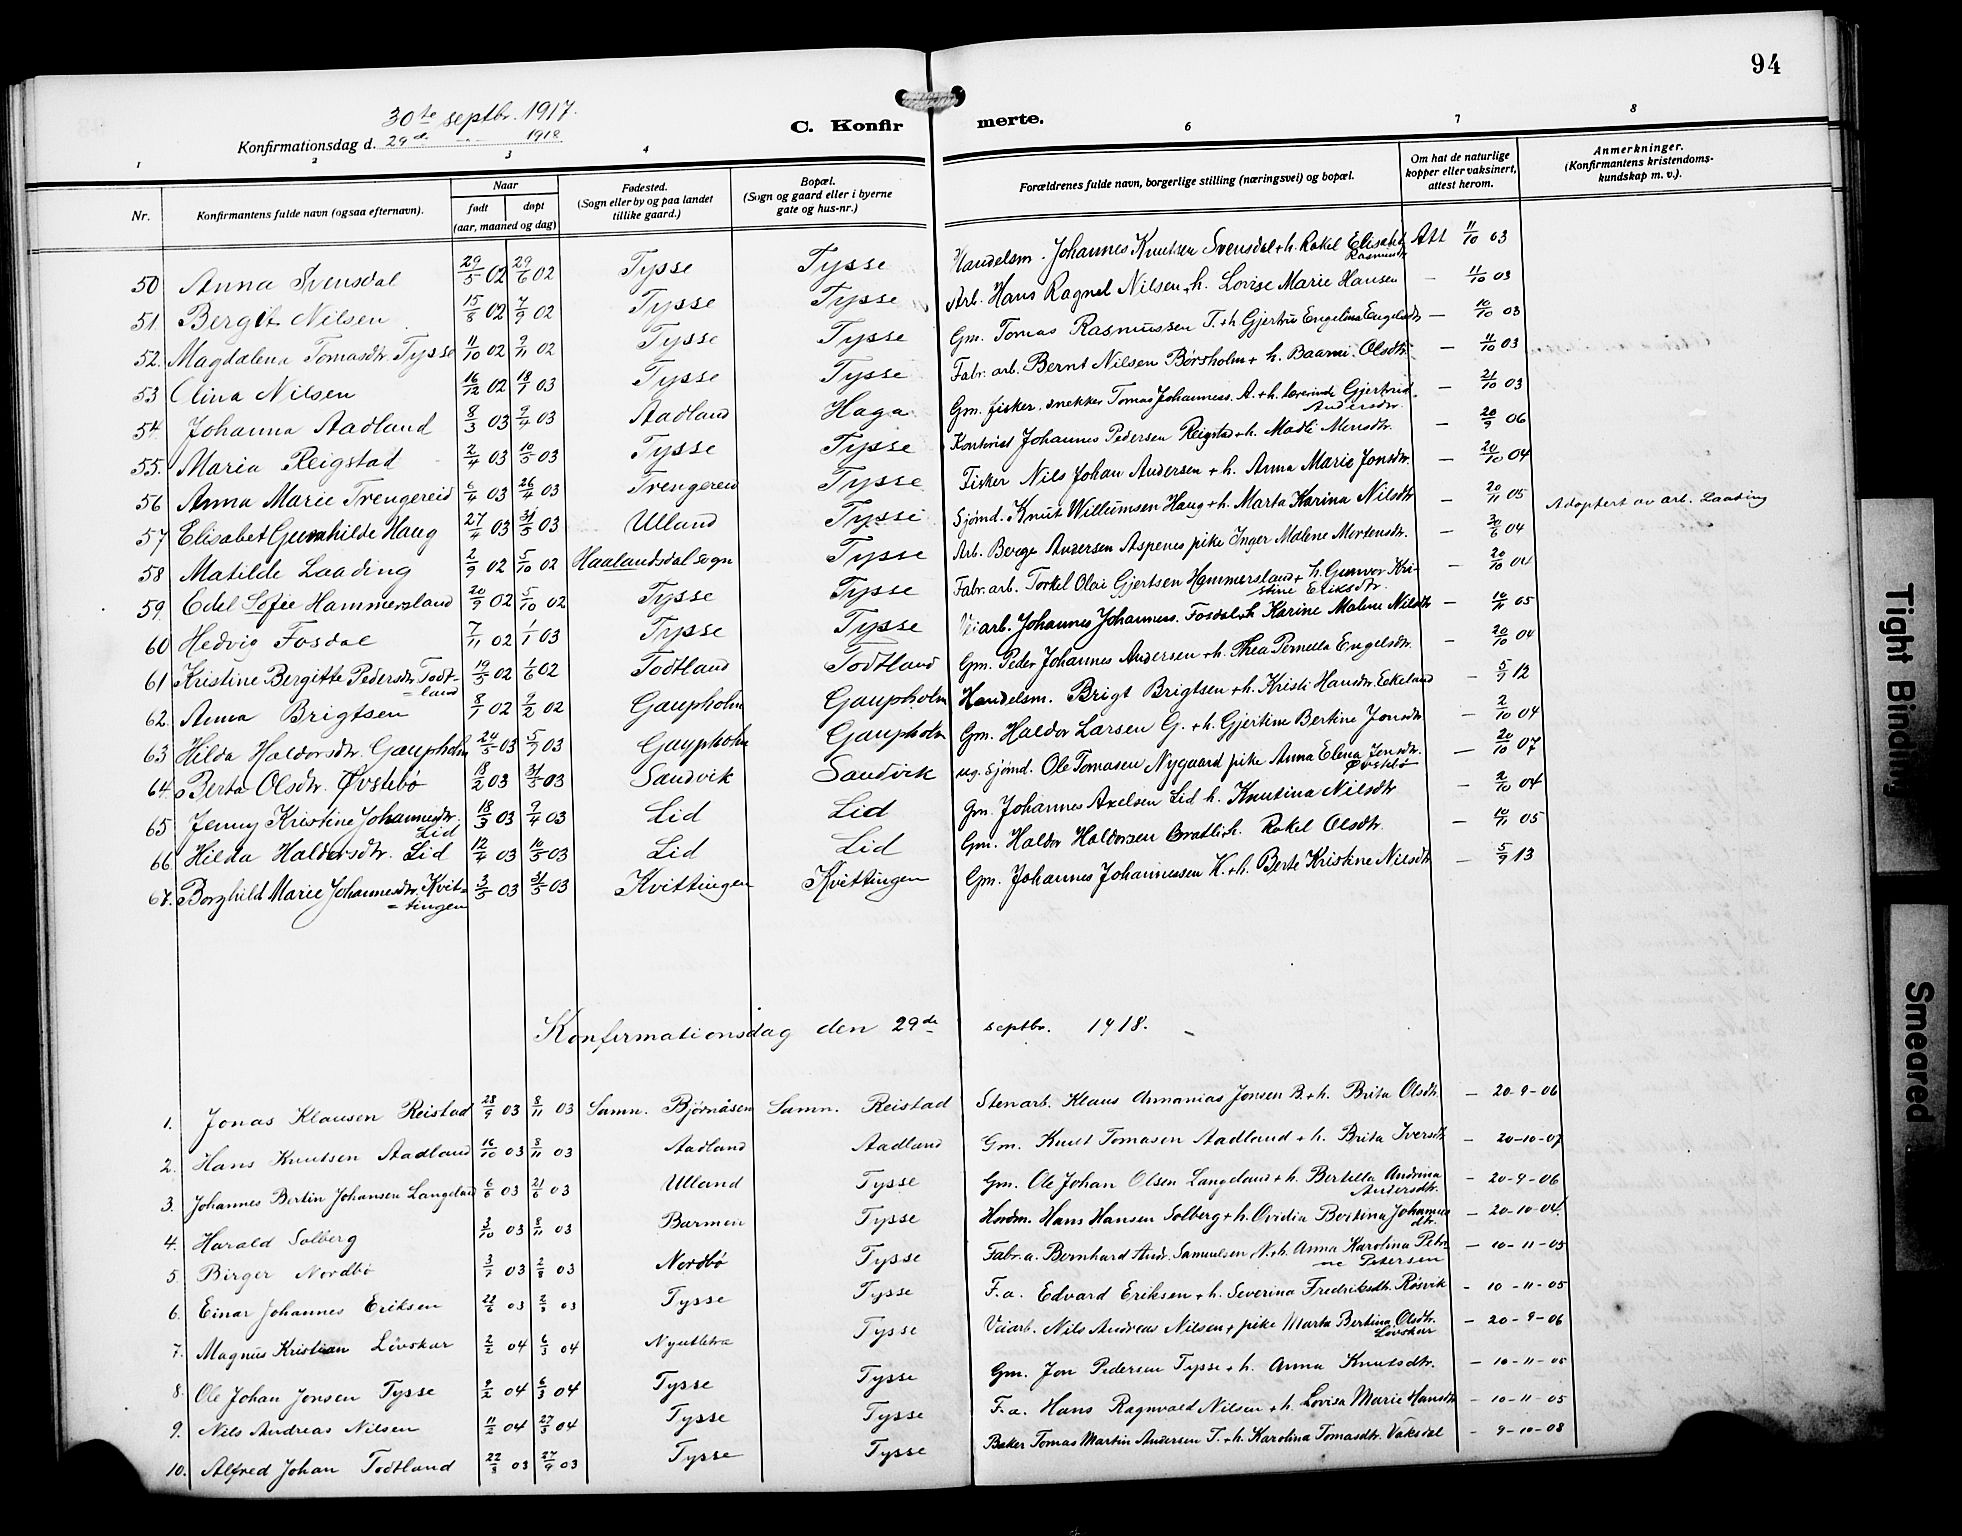 94
30te septbr. 1917.
Konfirmationsdag d. 29de -"- 1918
C. Konfirmerte.
1 2 3 4 6 7 8
Nr. Konfirmantens fulde navn (ogsaa efternavn). Naar født døpt (aar, maaned og dag) Fødested. (Sogn eller by og paa landet tillike gaard.) Bopæl. (Sogn og gaard eller i byerne gate og hus-nr.) Forældrenes fulde navn, borgerlige stilling (næringsvei) og bopæl. Om hat de naturlige kopper eller vaksinert, attest herom. Anmerkninger. (Konfirmantens kristendoms-kundskap m. v.).
50 Anna Svensdal 29/5 02 29/6 02 Tysse Tysse Handelsm. Johannes Knutsen Svensdal + h. Rakel Elisabet Rasmusdtr Att 11/10 03
51. Bergit Nilsen 15/8 02 7/9 02 Tysse Tysse Arb. Hans Ragnel Nilsen + h. Lovise Marie Hansen — 11/10 03
52. Magdalena Tomasdtr. Tysse 11/10 02 9/11 02 Tysse Tysse Gm. Tomas Rasmussen T. + h Gjertru Engelina Engelsdtr — 10/10 03
53 Olina Nilsen 16/12 02 18/1 03 Tysse Tysse Fabr. arb. Bernt Nilsen Børsholm + h. Olsdtr. — 11/10 03
54. Johanna Aadland 8/3 03 9/4 03 Aadland Haga Gm. fisker, snekker Tomas Johanness. A. + h. lærerinde Gjertrud Andersdtr. — 21/10 03
55. Maria Reigstad 2/4 03 10/5 03 Tysse Tysse Kontorist Johannes Pedersen Reigstad + h. Madli Monsdtr. — 20/9 06
56 Anna Marie Trengereid 6/4 03 26/4 03 Trengereid Tysse Fisker Nils Johan Andersen + h. Anna Marie Jonsdtr. — 20/10 04
57 Elisabet Gunhilde Haug 27/4 03 31/5 03 Ulland Tysse Sjømd. Knut Willumsen Haug + h. Marta Karina Nilsdtr — 20/11 05
58 Matilde Laading 2/9 02 5/10 02 Haalandsdal sogn Tysse Arb. Berge Andersen Aspenes pike Inger Malene Mortensdtr. — 20/6 04 Adoptert av arb. Laading
59. Edel Sofie Hammersland 20/9 02 5/10 02 Tysse Tysse Fabr. arb. Torkel Olai Gjertsen Hammersland + h. Gunvor Kristine Eriksdtr — 20/10 04
60 Hedvig Fosdal 7/11 02 1/1 03 Tysse Tysse Veiarb. Johannes Johanness. Fosdal + h Karine Malene Nilsdtr — 10/11 05
61 Kristine Bergitte Pedersdtr. Todt-land 19/5 02 1/6 02 Todtland Todtland Gm. Peder Johannes Andersen + h. Thea Pernella Engelsdtr. — 20/10 04
62. Anna Brigtsen 8/1 02 9/2 02 Gaupholm Gaupholm Handelsm. Brigt Brigtsen + h. Kristi Hansdtr. Eckeland — 5/9 12
63 Hilda Haldorsdtr. Gaupholm 24/5 03 5/7 03 Gaupholm Gaupholm Gm. Haldor Larsen G. + h. Gjertine Bertine Jonsdtr — 2/10 04
64. Berta Olsdtr. Øvstebø 18/2 03 31/5 03 Sandvik Sandvik ug. sjømd. Ole Tomasen Nygaard pike Anna Elena Jensdtr. Øvstebø — 20/10 07
65 Jenny Kristine Johannesdtr. Lid 18/3 03 9/4 03 Lid Lid Gm. Johannes Axelsen Lid h. Knutina Nilsdtr — 2/10 04
66. Hilda Haldorsdtr. Lid 12/4 03 10/5 03 Lid Lid Gm. Haldor Haldorsen h. Rakel Olsdtr. — 10/11 05
67. Borghild Marie Johannesdtr. Kvit-tingen 3/5 03 31/5 03 Kvittingen Kvittingen Gm. Johannes Johannessen K. + h. Berte Kristine Nilsdtr — 5/9 13
Konfirmationsdag den 29de septbr. 1918.
1. Jonas Klausen Reistad 28/9 03 8/11 03 Samn. Bjørnåsen Samn. Reistad Stenarb. Klaus Annanias Jonsen B. + h. Brita Olsdtr — 20-9-06
2. Hans Knutsen Aadland 16/10 03 8/11 03 Aadland Aadland Gm. Knut Tomasen Aadland + h. Brita Iversdtr — 20-10-07
3. Johannes Bertin Johansen Langeland 6/6 03 21/6 03 Ulland Tysse Gm. Ole Johan Olsen Langeland + h. Andrina Andersdtr. — 20-9-06
4. Harald Solberg 3/10 03 8/11 03 Barmen Tysse Hans Hansen Solberg + h. Ovidia Bertina Johannesdtr. — 20-10-04
5. Birger Nordbø 3/7 03 2/8 03 Nordbø Tysse Fabr. a. Bernhard Andr. Samuelsen N. + h. Anna Karolina Petrine Petersen — 10-11-05
6. Einar Johannes Eriksen 22/6 03 2/8 03 Tysse Tysse F. a. Edvard Eriksen + h. Severina Fredriksdtr. Røsvik — 10-11-05
7. Magnus Kristian Løvskar 2/2 04 6/3 04 Tysse Veiarb. Nils Andreas Nilsen + pike Marta Bertina Olsdtr. Løvskar — 20-9-06
8. Ole Johan Jonsen Tysse 9/2 04 6/3 04 Tysse Tysse Gm. Jon Pedersen Tysse + h. Anna Knutsdtr. — 10-11-05
9. Nils Andreas Nilsen 11/2 04 27/3 04 Tysse Tysse F. a. Hans Ragnvald Nilsen + h. Lovisa Marie Hansdtr — 10-11-05
10. Alfred Johan Todtland 22/8 03 27/9 03 Tysse Tysse Baker Tomas Martin Andersen T. + h. Karolina Tomasdtr. Vaksdal — 9-10-08
Tight Binding
Smeared